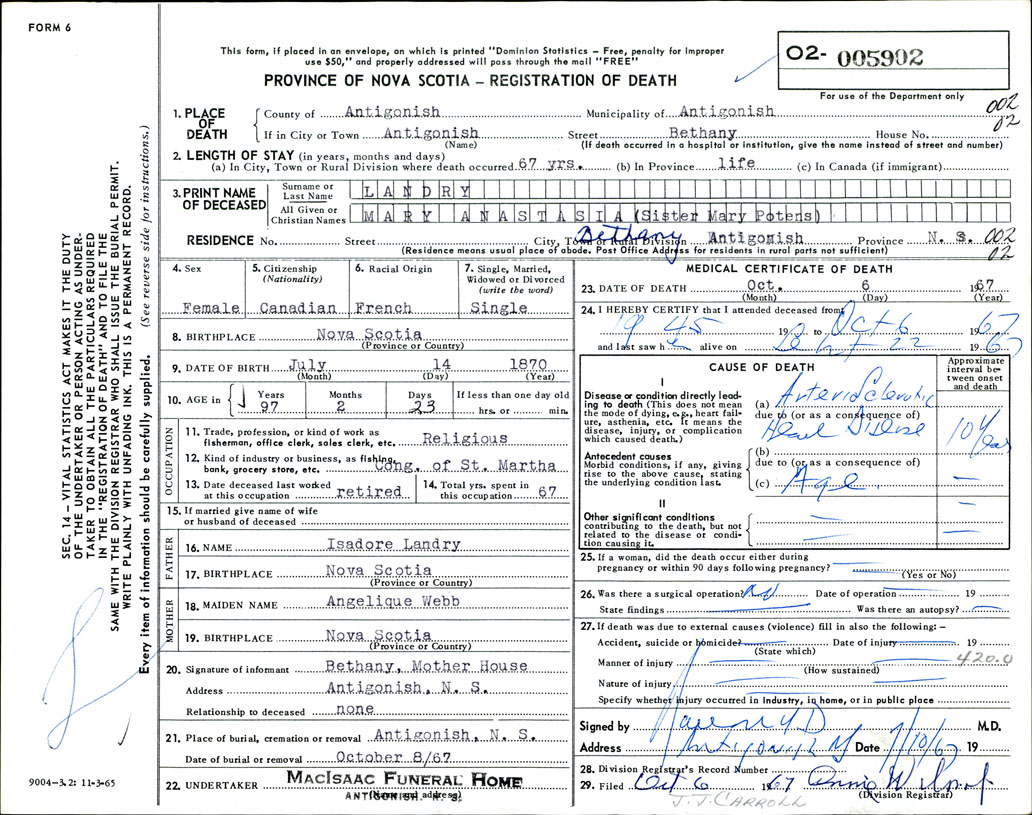 FORM 6
This form, if placed in an envelope, on which is printed "Dominion Statistics – Free, penalty for improper
use $50," and properly addressed will pass through the mail "FREE"
PROVINCE OF NOVA SCOTIA – REGISTRATION OF DEATH
02- 005902
For use of the Department only
002
02
1. PLACE OF DEATH
County of Antigonish Municipality of Antigonish
If in City or Town Antigonish Street Bethany House No.
(Name) (If death occurred in a hospital or institution, give the name instead of street and number)
2. LENGTH OF STAY (in years, months and days)
(a) In City, Town or Rural Division where death occurred 67 yrs. (b) In Province life (c) In Canada (if immigrant)
3. PRINT NAME OF DECEASED
Surname or Last Name LANDRY
All Given or Christian Names MARY ANASTASIA (Sister Mary Potens)
RESIDENCE No. Street City, Town or Rural Division Bethany Antigonish Province N. S. 002
02
(Residence means usual place of abode. Post Office Address for residents in rural parts not sufficient)
4. Sex
Female
5. Citizenship
(Nationality)
Canadian
6. Racial Origin
French
7. Single, Married,
Widowed or Divorced
(write the word)
Single
8. BIRTHPLACE Nova Scotia
(Province or Country)
9. DATE OF BIRTH July 14 1870
(Month) (Day) (Year)
10. AGE in Years Months Days If less than one day old
97 2 23 hrs. or min.
OCCUPATION
11. Trade, profession, or kind of work as
fisherman, office clerk, sales clerk, etc. Religious
12. Kind of industry or business, as fishing,
bank, grocery store, etc. Cong. of St. Martha
13. Date deceased last worked
at this occupation retired
14. Total yrs. spent in
this occupation 67
15. If married give name of wife
or husband of deceased
FATHER
16. NAME Isadore Landry
17. BIRTHPLACE Nova Scotia
(Province or Country)
MOTHER
18. MAIDEN NAME Angelique Webb
19. BIRTHPLACE Nova Scotia
(Province or Country)
20. Signature of informant Bethany, Mother House
Address Antigonish, N. S.
Relationship to deceased none
21. Place of burial, cremation or removal Antigonish, N. S.
Date of burial or removal October 8/67
22. UNDERTAKER MACISAAC FUNERAL HOME
(Name and address)
ANTIGONISH, N. S.
MEDICAL CERTIFICATE OF DEATH
23. DATE OF DEATH Oct. 6 1967
(Month) (Day) (Year)
24. I HEREBY CERTIFY that I attended deceased from
1945 19 to Oct 6 1967
and last saw h alive on Sept 22 1967
CAUSE OF DEATH
Approximate interval between onset and death
I
Disease or condition directly leading to death (This does not mean
the mode of dying, e.g., heart failure, asthenia, etc. It means the
disease, injury, or complication
which caused death.)
(a) Arteriosclerotic
due to (or as a consequence of)
Heart Disease 10 Years
Antecedent causes
Morbid conditions, if any, giving
rise to the above cause, stating
the underlying condition last.
(b)
due to (or as a consequence of)
(c) Age. —
II
Other significant conditions
contributing to the death, but not
related to the disease or condition causing it.
25. If a woman, did the death occur either during
pregnancy or within 90 days following pregnancy?
(Yes or No)
26. Was there a surgical operation? No Date of operation 19
State findings Was there an autopsy?
27. If death was due to external causes (violence) fill in also the following: –
Accident, suicide or homicide? Date of injury 19
(State which)
420.0
Manner of injury
(How sustained)
Nature of injury
Specify whether injury occurred in industry, in home, or in public place
Signed by M.D.
Address Antigonish Date 7/10/67 19
28. Division Registrar's Record Number
29. Filed Oct 6 1967
(Division Registrar)
J. J. CARROLL
SEC. 14 – VITAL STATISTICS ACT MAKES IT THE DUTY
OF THE UNDERTAKER OR PERSON ACTING AS UNDERTAKER TO OBTAIN ALL THE PARTICULARS REQUIRED
IN THE "REGISTRATION OF DEATH" AND TO FILE THE
SAME WITH THE DIVISION REGISTRAR WHO SHALL ISSUE THE BURIAL PERMIT.
WRITE PLAINLY WITH UNFADING INK. THIS IS A PERMANENT RECORD.
Every item of information should be carefully supplied. (See reverse side for instructions.)
9004-3.2: 11-3-65